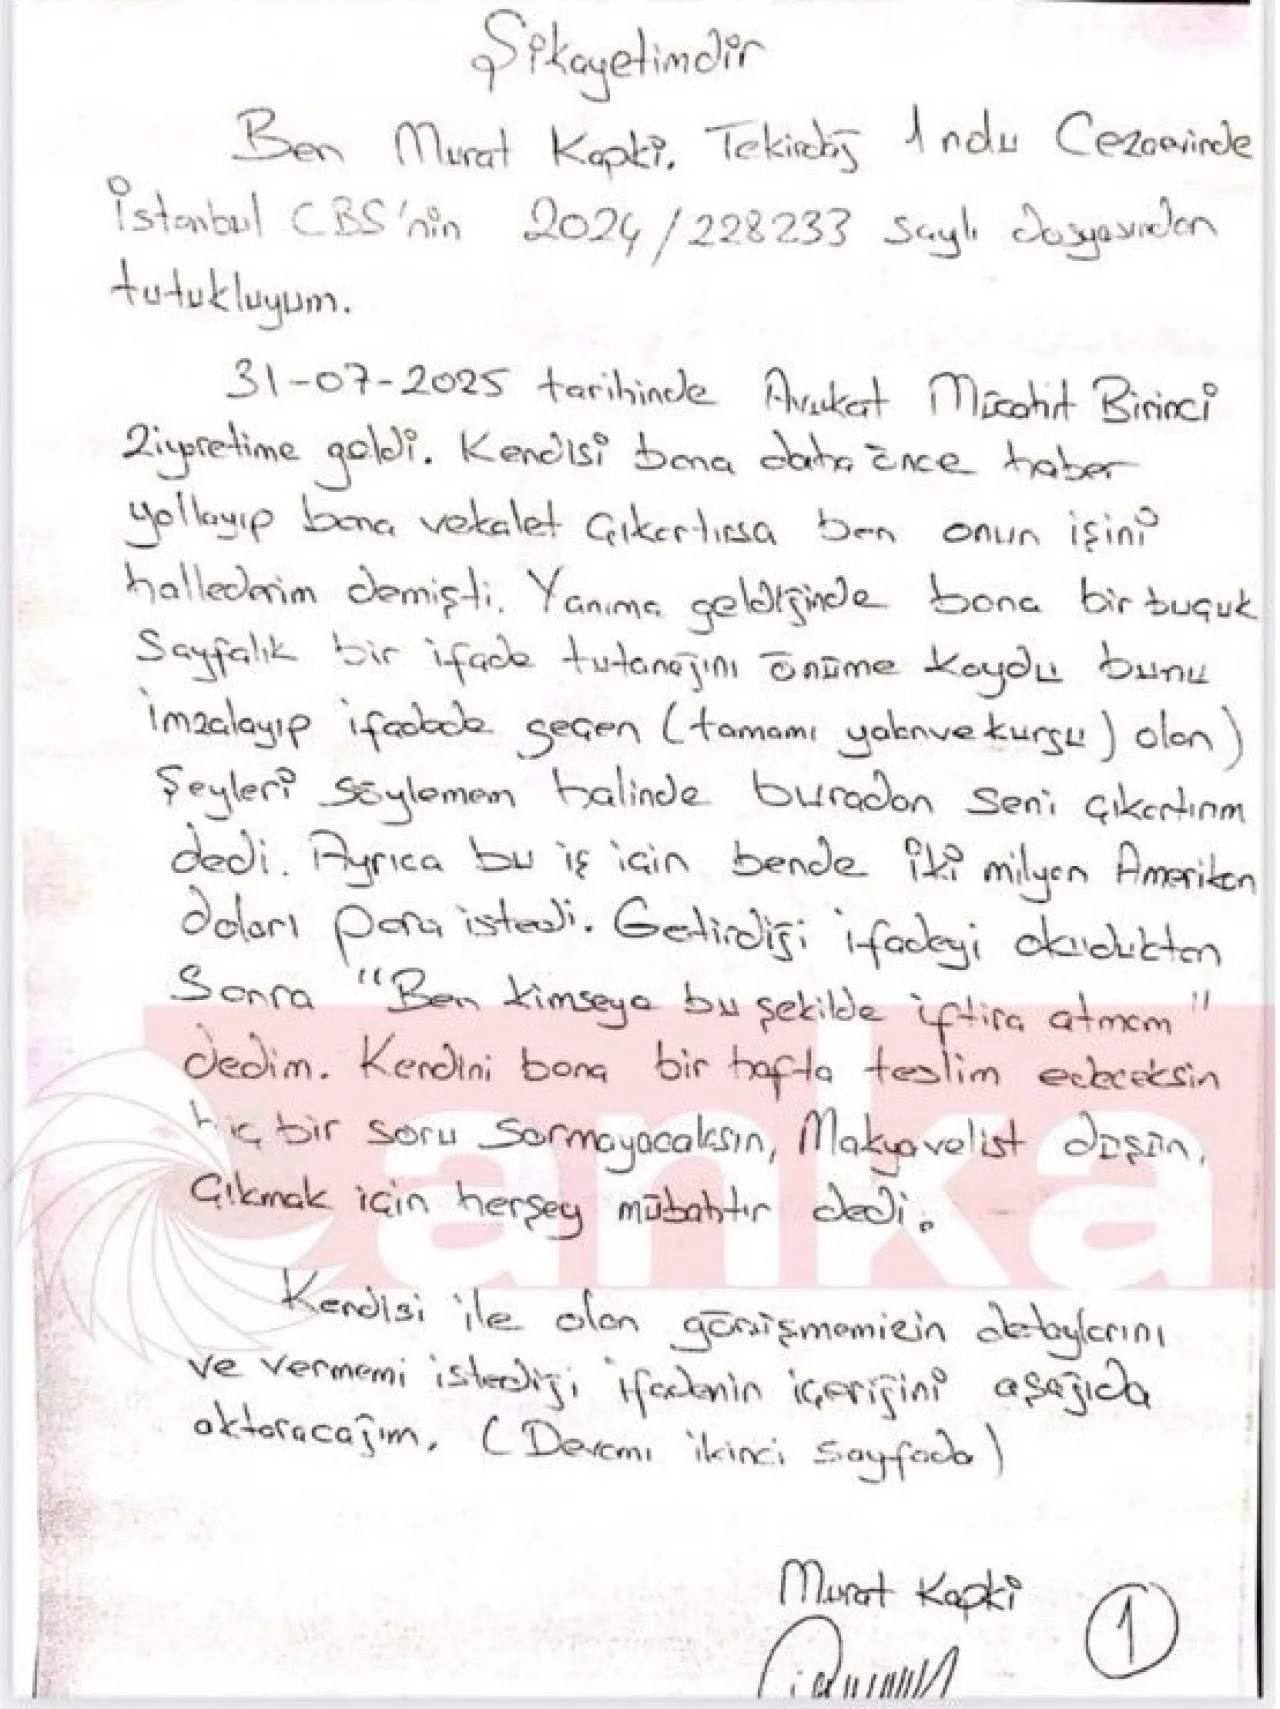 Şikayetimdir
Ben Murat Kapki. Tekirdağ 1 nolu Cezaevinde
İstanbul CBS'nin 2024/228233 saylı dosyasından
tutukluyum.
31-07-2025 tarihinde Avukat Mücahit Birinci
Ziyaretime geldi. Kendisi bana daha önce haber
yollayıp bana vekalet çıkartırsa ben onun işini
hallederim demişti. Yanıma geldiğinde bana bir buçuk
Sayfalık bir ifade tutanağını önüme koydu bunu
imzalayıp ifadede geçen (tamamı yalan ve kurgu) olan)
Şeyleri söylemem halinde buradan seni çıkartırım
dedi. Ayrıca bu iş için bende iki milyon Amerikan
doları para istedi. Getirdiği ifadeyi okuduktan
Sonra "Ben kimseye bu şekilde iftira atmam"
dedim. Kendini bana bir hafta teslim edeceksin
hiç bir soru sormayacaksın, Makyavelist düşün,
Çıkmak için herşey mübahtır dedi.
anka
Kendisi ile olan görüşmemizin detaylarını
ve vermemi istediği ifadenin içeriğini aşağıda
aktaracağım. (Devamı ikinci sayfada)
Murat Kapki
1